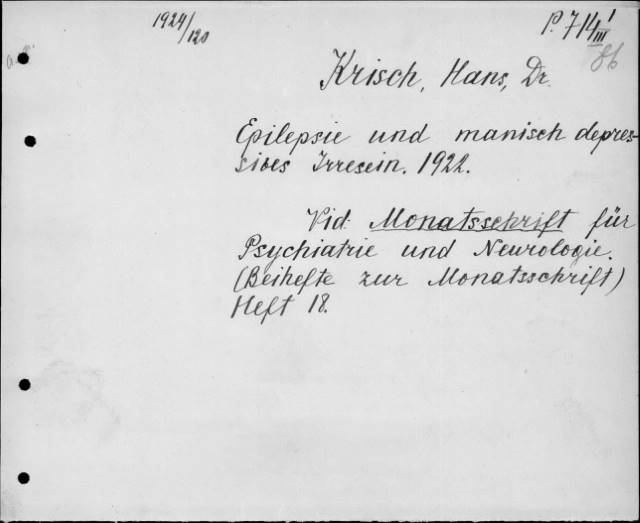 1924/120
P. 714/III 1
86
Krisch, Hans, Dr.
Epilepsie und manisch depres-
sives Irresein. 1922.
Vid: Monatsschrift für
Psychiatrie und Neurologie.
(Beihefte zur Monatsschrift)
Heft 18.